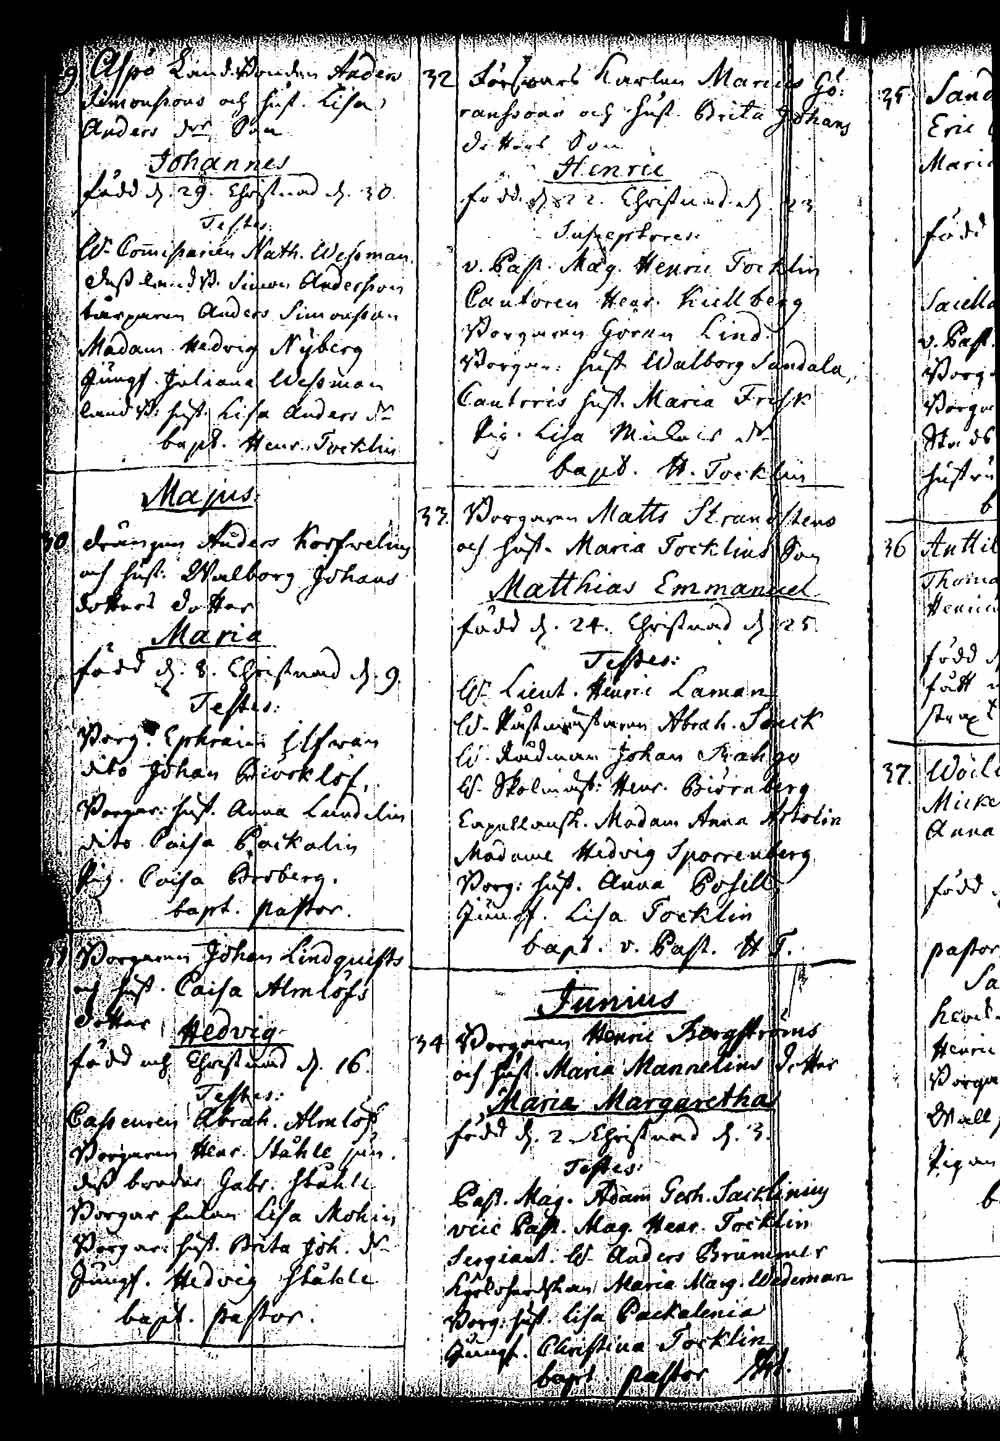 Aspö Land Bonden Anders
Simonssons och hust. Lisa
Anders dr Son
Johannes
född d. 29. Christnad d. 30.
Testes:
Hr Commissarien Nath. Wessman.
dess land B. Simon Andersson
Anders Simonsson
Madam Hedvig Nÿberg
Jungf. Juliana Wessman
land B: hust. Lisa Anders dr
bapt. Henr. Tocklin
Majus:
30. drängen Anders
och hust. Walborg Johans
dotters dotter
Maria
född d. 8. Christnad d. 9.
Testes:
Borg. Ephraim
dito Johan Biörklöf,
Borgar: hust. Anna Lundelin
dito Caisa Packalin
Pig. Caisa Broberg.
bapt. pastor.
Borgaren Johan Lindquists
och hust. Caisa Almlöfs
dotter Hedvig
född och Christnad d. 16.
Testes:
Casseuren Abrah. Almlöf
Borgaren Henr. Ståhle jun.
dess broder Gabr. Ståhle
Borgar Lisa Mohin
Borgar: hust. Brita Joh. dr
Jungf. Hedvig Ståhle
bapt. pastor.
32 Försvars Karlen Marcus Gö:
ranssons och hust. Brita Johans
dotters Son
Henric
född d. 22. Christnad d. 23
Susceptores:
v. Past. Mag. Henric Tocklin
Cantoren Henr. Kiellberg
Borgaren Göran Lind.
Borgar: hust Walborg Sandala,
Cantoris hust. Maria Frisk
Pig. Lisa Michels dr
bapt. H. Tocklin
33. Borgaren Matts Strandstens
och hust. Maria Tocklins Son
Matthias Emmanuel
född d. 24. Christnad d. 25.
Testes:
Hr Lieut. Henric Laman
Hr Abrah. Sauck
Hr Rådman Johan Frahge
Hr Skolmäst: Henr. Biörnberg
Capellansk. Madam Anna Astolin
Madame Hedvig Sporrenberg
Borg: hust. Anna Posell
Jungf. Lisa Tocklin
bapt. v. Past. H T.
Junius
34 Borgaren Henric Bergströms
och hust. Maria Mannelins dotter
Maria Margaretha
född d. 2. Christnad d. 3.
Testes:
Past. Mag. Adam Goth. Sacklinius
vice Past. Mag. Henr. Tocklin
Sergeant. Hr Anders Brummer
Maria Marg. Wideman
Borg: hust. Lisa Packalenia
Jungf. Christina Tocklin
bapt. pastor
35. Sand
Eric
Maria
född
v. Past.
Borg
Borgar
hustru
b
36 Anttil
Thoma
Henric
född d
född
strax
37.
Micke
Anna
född
pastor
Sa
Henric
Borgar
Wall
Pigan
b